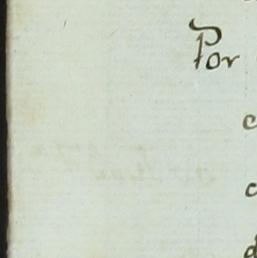 Por
c
c
d